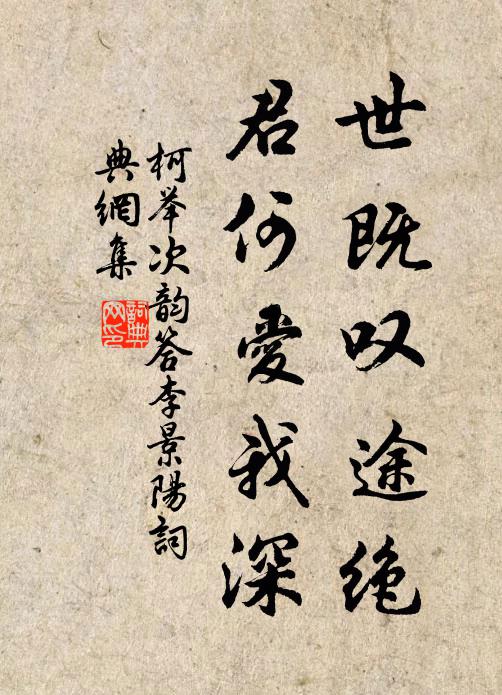 世既叹途绝
君何爱我深
柯举次韵答李景陽詞
典網集
詞典網印